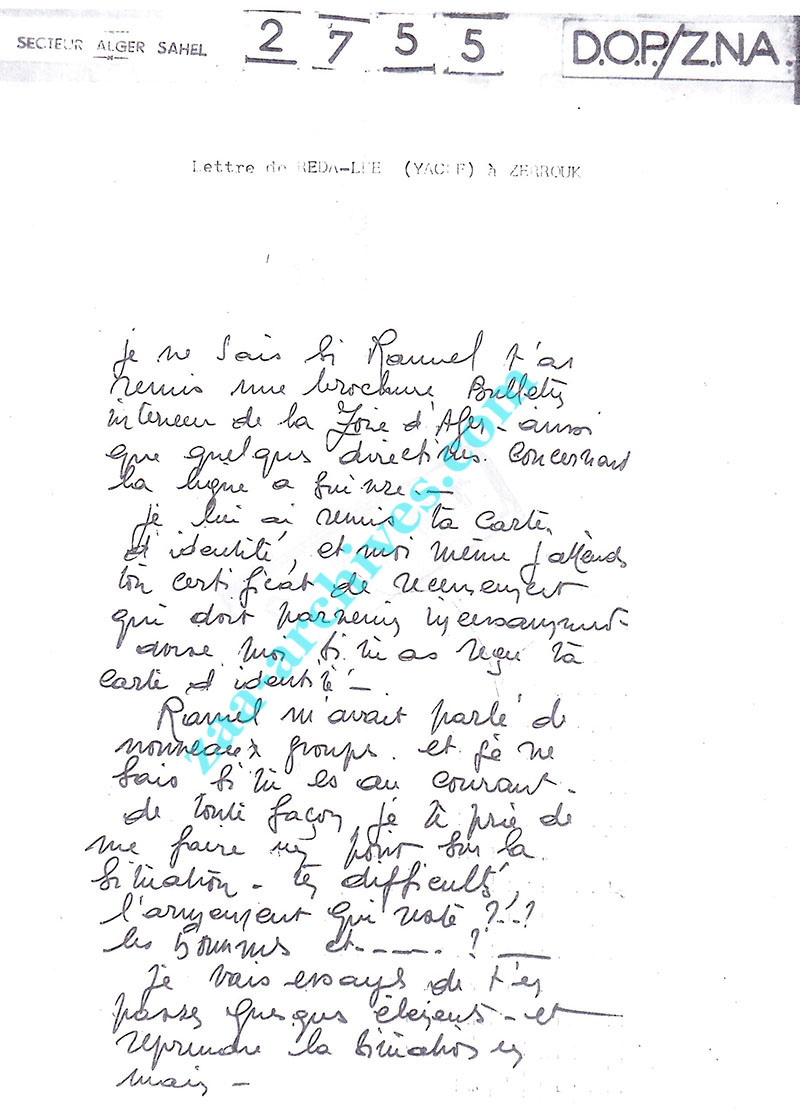 SECTEUR ALGER SAHEL
2 7 5 5
D.O.P/Z.N.A.
Lettre de REDA-LEE (YACEF) à ZERROUK
je ne sais si Ramel t'as
remis une brochure Bulletin
interieur de la Zone d'Alger - ainsi
que quelques directives concernant
la ligne a suivre. -
je lui ai remis ta carte
d'identité, et moi même j'attends
ton certificat de recensement
qui doit parvenir incessamment
donne moi si tu as reçu ta
carte d'identité -
Ramel m'avait parlé de
nouveaux groups. et je ne
sais si tu es au courant -
de toute façon je te prie de
me faire un point sur la
situation - tes difficultés,
l'armement qui reste ?..?
les hommes et - - - - . ? —
je vais essayer de t'en
passer quelques éléments - et
reprendre la situation en
main -
zaa-archives.com